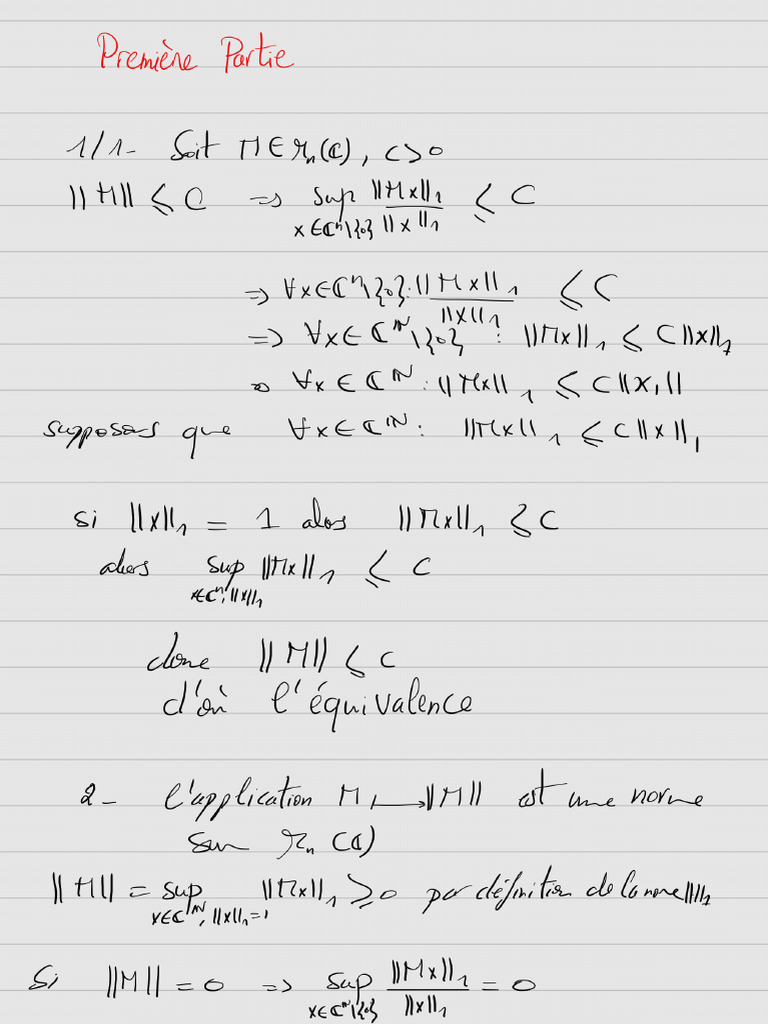 Première Partie
1/1- Soit M ∈ 𝓜ₙ(ℂ), c>0
||M|| ⩽ C => sup ||Mx||₁ / ||x||₁ ⩽ C
x∈ℂⁿ\{0}
=> ∀x∈ℂⁿ\{0}: ||Mx||₁ / ||x||₁ ⩽ C
=> ∀x∈ℂᴺ\{0} : ||Mx||₁ ⩽ C||x||₁
=> ∀x∈ℂᴺ : ||Mx||₁ ⩽ C||x₁||
supposons que ∀x∈ℂᴺ : ||Mx||₁ ⩽ C||x||₁
si ||x||₁ = 1 alos ||Mx||₁ ⩽ C
alors sup ||Mx||₁ ⩽ C
x∈ℂⁿ, ||x||₁
donc ||M|| ⩽ C
d'où l'équivalence
2- l'application M ↦ ||M|| est une norme
sur 𝓜ₙ(ℂ)
||M|| = sup ||Mx||₁ ⩾ 0 par définition de la norme ||·||₁
x∈ℂᴺ, ||x||₁=1
Si ||M|| = 0 => sup ||Mx||₁ / ||x||₁ = 0
x∈ℂᴺ\{0}